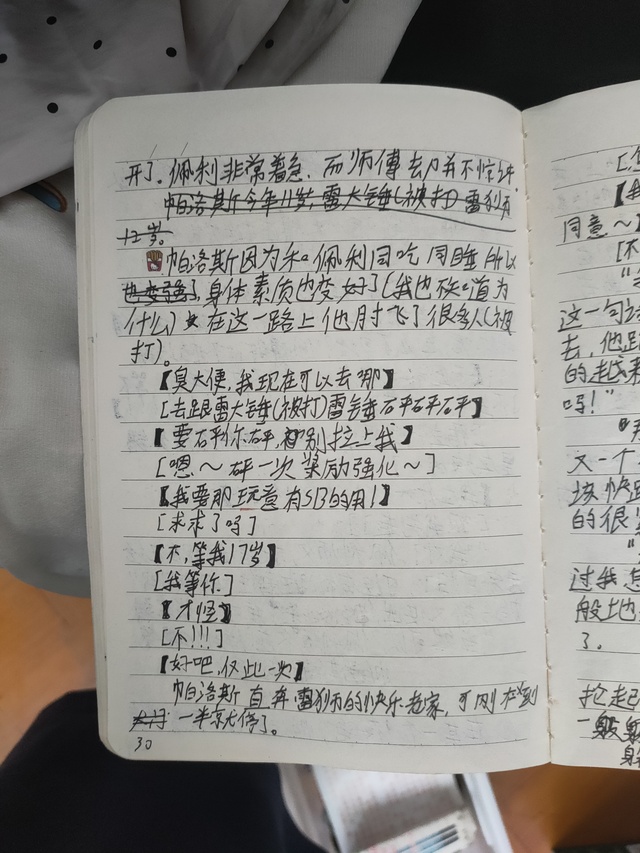 开了。佩利非常着急，而师傅却并不惊讶。
帕洛斯今年11岁，雷大锤(被打)雷狮
12岁。
帕洛斯因为和佩利同吃同睡所以
也变强了身体素质也变好了(我也不知道为
什么)在这一路上他肘飞了很多人(被
打)。
【臭大便，我现在可以去那】
[去跟雷大锤(被打)雷锤砰砰砰]
【要砰你砰，别拉上我】
[嗯～砰一次奖励强化～]
【我要那玩意有SB的用!】
[求求了吗]
【不，等我17岁】
[我等你]
【才怪】
[不!!!]
【好吧，仅此一次】
帕洛斯直奔雷狮的快乐老家，可刚
一半就停了。
30
【我
同意～】
[不
这一句话
去，他
的越来
吗!"
又一个
块快
的很
过我
般上也
了.
抢起
一般
身